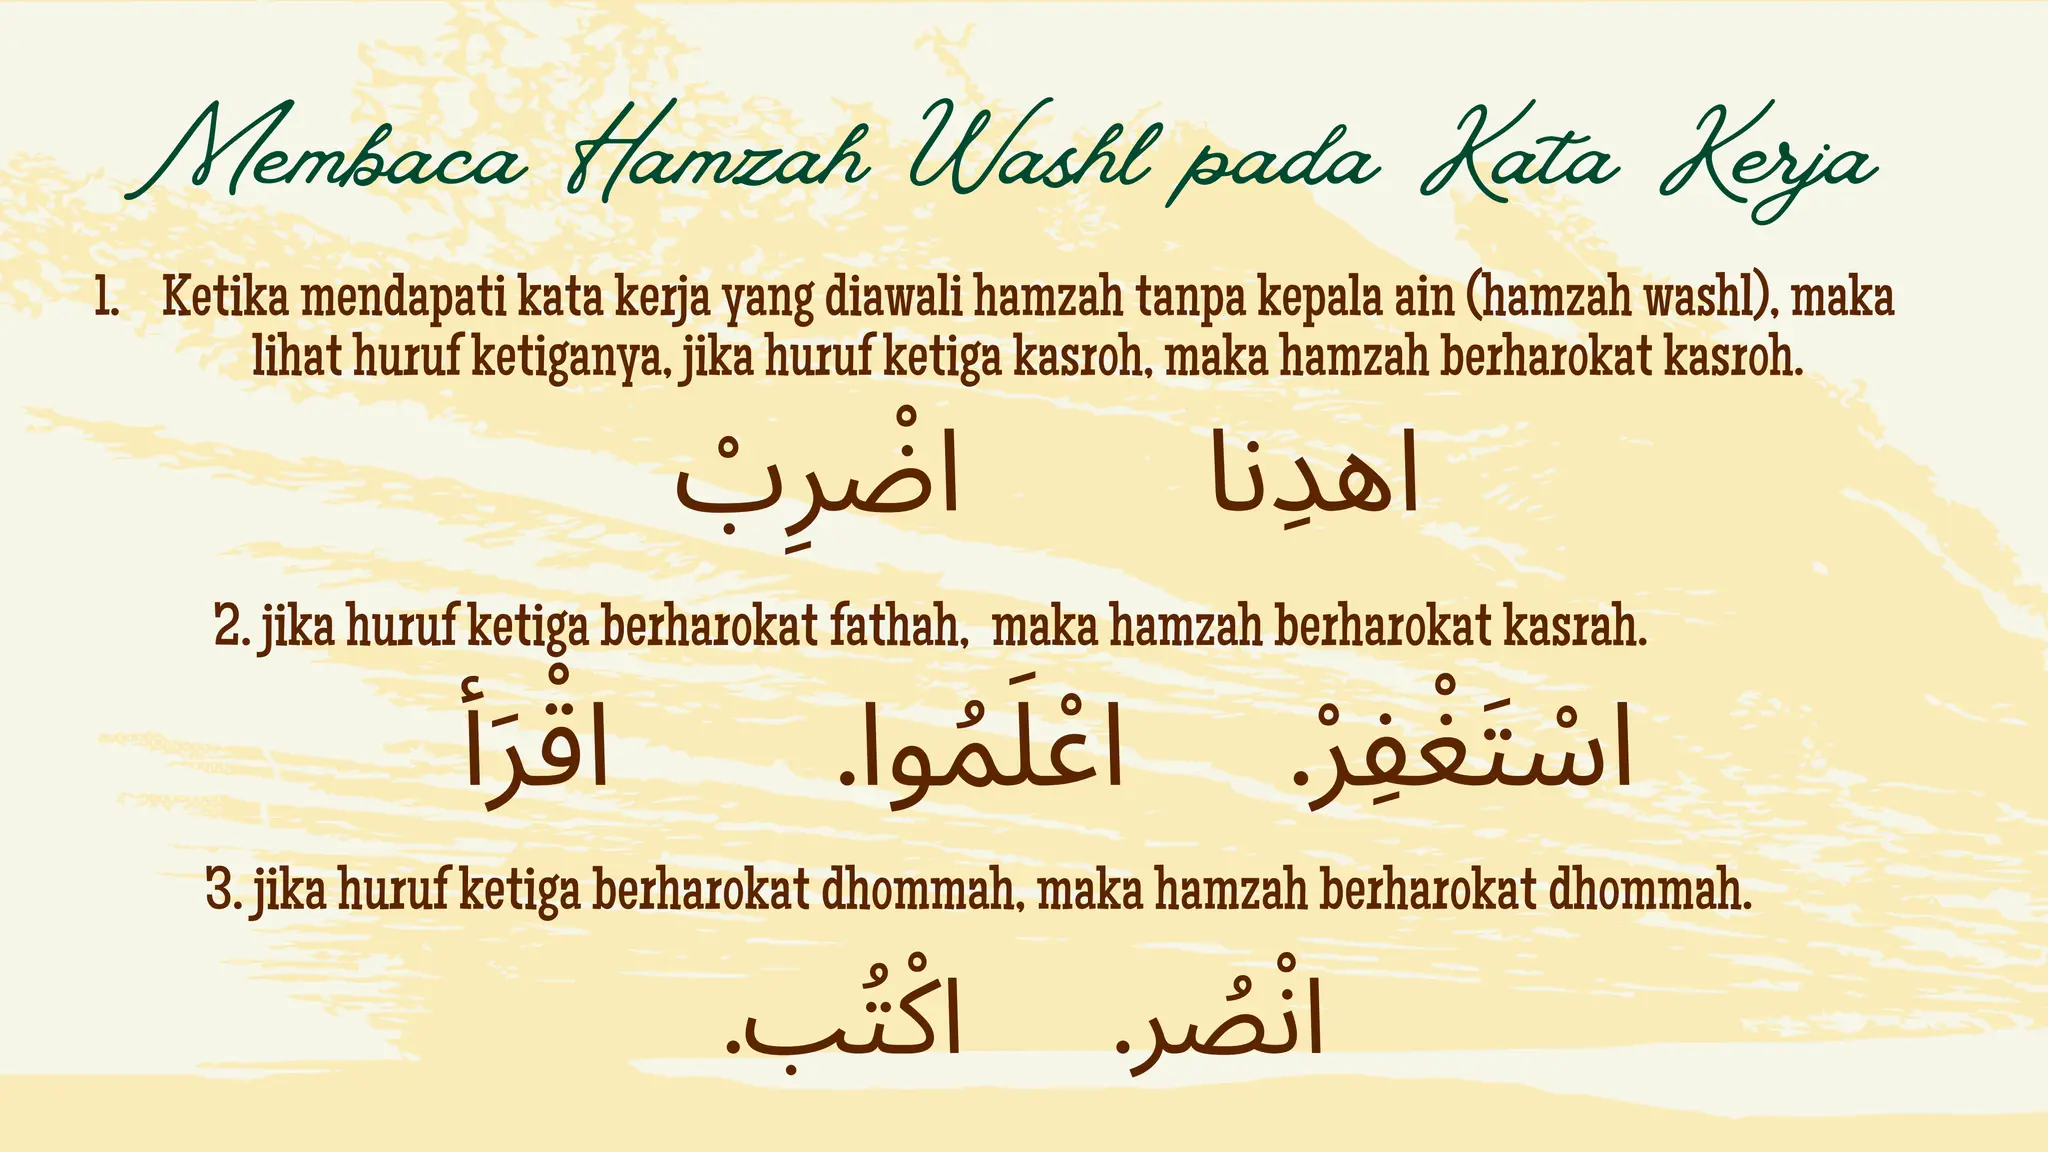 Membaca Hamzah Washl pada Kata Kerja
1. Ketika mendapati kata kerja yang diawali hamzah tanpa kepala ain (hamzah washl), maka
lihat huruf ketiganya, jika huruf ketiga kasroh, maka hamzah berharokat kasroh.
اهدِنا اضْرِبْ
2. jika huruf ketiga berharokat fathah, maka hamzah berharokat kasrah.
اسْتَغْفِرْ. اعْلَمُوا. اقْرَأ
3. jika huruf ketiga berharokat dhommah, maka hamzah berharokat dhommah.
انْصُر. اكْتُب.